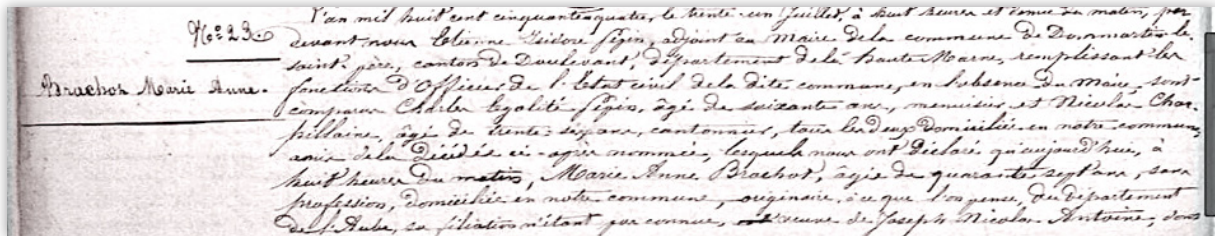 L'an mil huit cent cinquante quatre, le trente-un Juillet, à huit heures et demie du matin, par
N.° 23.
devant nous Etienne Isidore Pépin, adjoint au Maire de la commune de Dommartin-le-
saint-père, canton de Doulevant, département de la haute Marne, remplissant les
Brachot Marie Anne.
fonctions d'Officier de l'Etat civil de la dite commune, en l'absence du Maire, sont
comparus Charles Egalité Pépin, âgé de soixante ans, menuisier et Nicolas Char-
pillaire, âgé de trente-six ans, cantonnier, tous les deux domiciliés en notre commune,
amis de la Décédée ci-après nommée, lesquels nous ont déclaré qu'aujourd'hui, à
huit heures du matin, Marie Anne Brachot, âgée de quarante sept ans, sans
profession, domiciliée en notre commune, originaire, à ce que l'on pense, du département
de l'Aube, sa filiation n'étant pas connue, veuve de Joseph Nicolas Antoine, dont